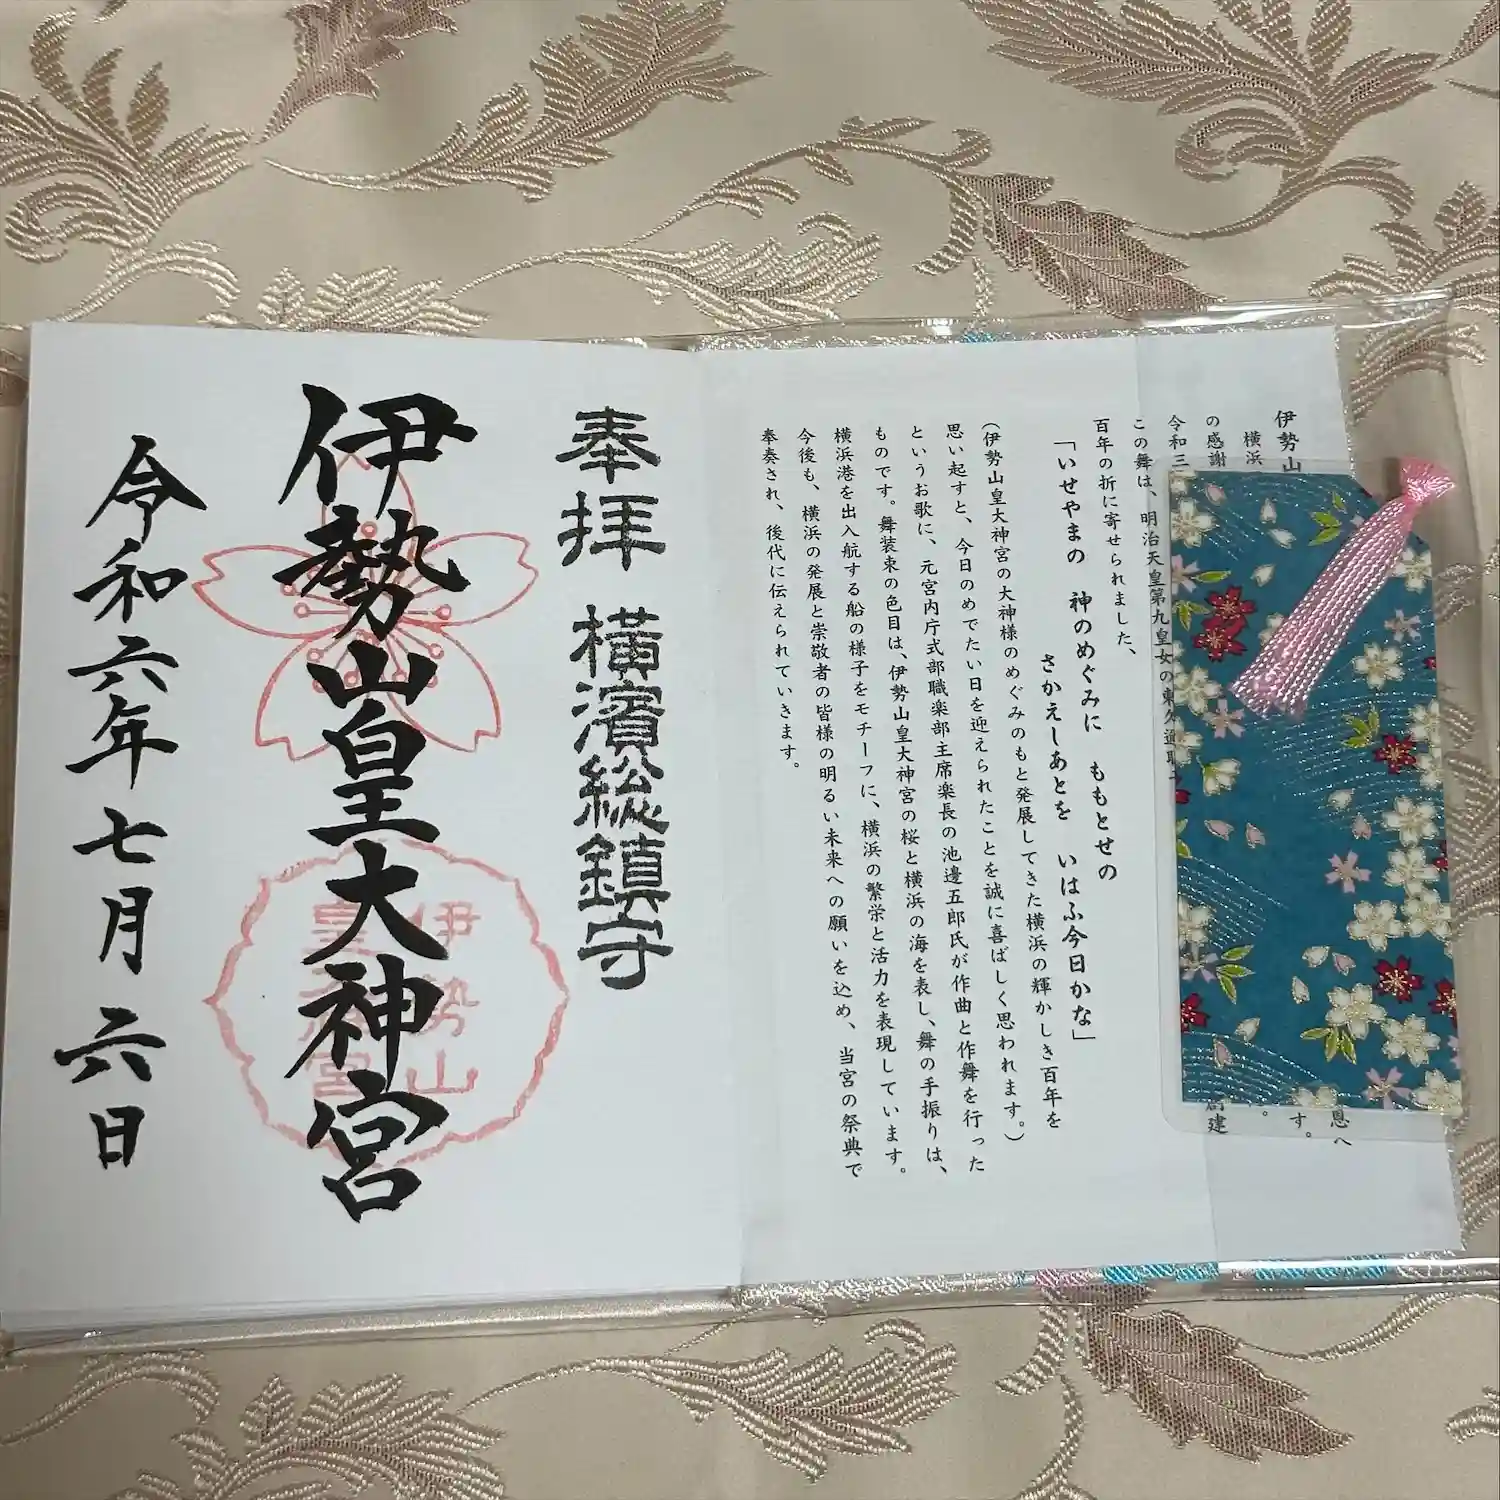 伊勢山
横浜
の感謝
令和三
この舞は、明治天皇第九皇女の東久邇聡子
百年の折に寄せられました、
「いせやまの　神のめぐみに　ももとせの
さかえしあとを　いはふ今日かな」
(伊勢山皇大神宮の大神様のめぐみのもと発展してきた横浜の輝かしき百年を
思い起すと、今日のめでたい日を迎えられたことを誠に喜ばしく思われます。)
というお歌に、元宮内庁式部職楽部主席楽長の池邊五郎氏が作曲と作舞を行った
ものです。舞装束の色目は、伊勢山皇大神宮の桜と横浜の海を表し、舞の手振りは、
横浜港を出入航する船の様子をモチーフに、横浜の繁栄と活力を表現しています。
今後も、横浜の発展と崇敬者の皆様の明るい未来への願いを込め、当宮の祭典で
奉奏され、後代に伝えられていきます。
恩へ
す。
。
創建
奉拝　横濱総鎮守
伊勢山皇大神宮
伊勢山
皇大神宮
令和六年七月六日